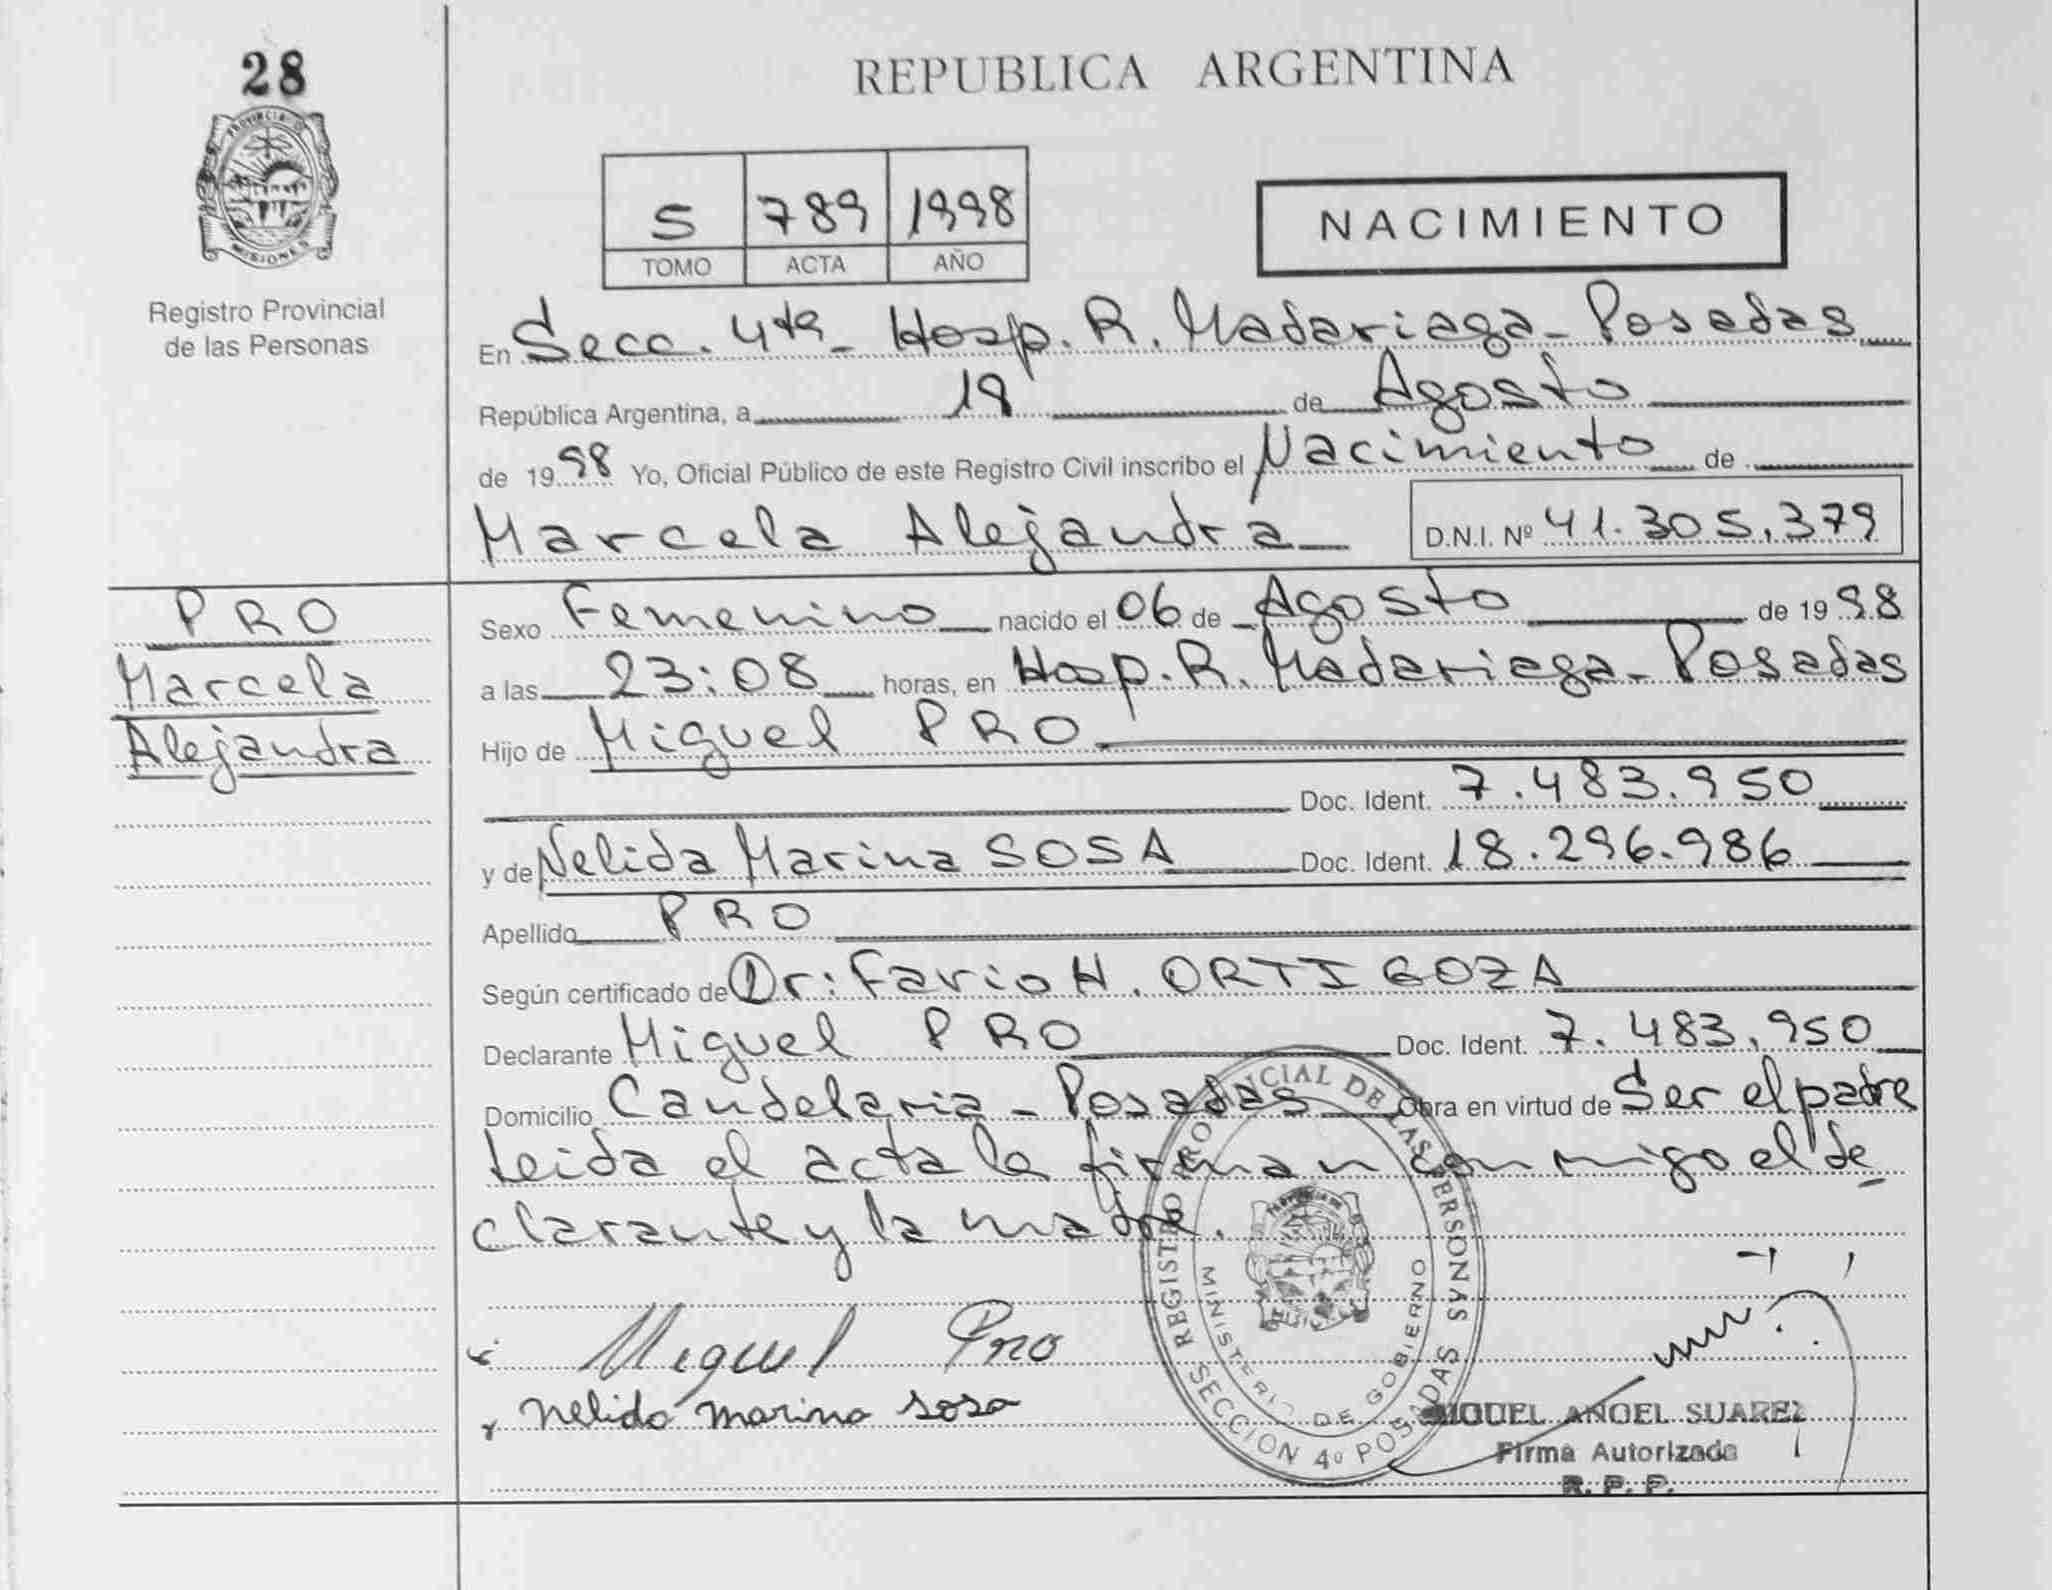 28
PROVINCIA D
MISIONES
Registro Provincial
de las Personas
REPUBLICA ARGENTINA
5 789 1998
TOMO ACTA AÑO
NACIMIENTO
En Secc. 4ta - Hosp. R. Madariaga - Posadas
República Argentina, a 19 de Agosto
de 1998 Yo, Oficial Público de este Registro Civil inscribo el Nacimiento de
Marcela Alejandra D.N.I. Nº 41.305.379
PRO
Marcela
Alejandra
Sexo Femenino nacido el 06 de Agosto de 1998
a las 23:08 horas, en Hosp. R. Madariaga - Posadas
Hijo de Miguel PRO
Doc. Ident. 7.483.950
y de Nelida Marina SOSA Doc. Ident. 18.296.986
Apellido PRO
Según certificado de Dr: Fario H. ORTIGOZA
Declarante Miguel PRO Doc. Ident. 7.483.950
Domicilio Candelaria - Posadas Obra en virtud de Ser el padre
Leida el acta la firman conmigo el de
clarante y la madre.
REGISTRO PROVINCIAL DE LAS PERSONAS
MINISTERIO DE GOBIERNO
SECCION 4º POSADAS
Miguel Pro
Nelida marina sosa
MIGUEL ANGEL SUAREZ
Firma Autorizada
R. P. P.